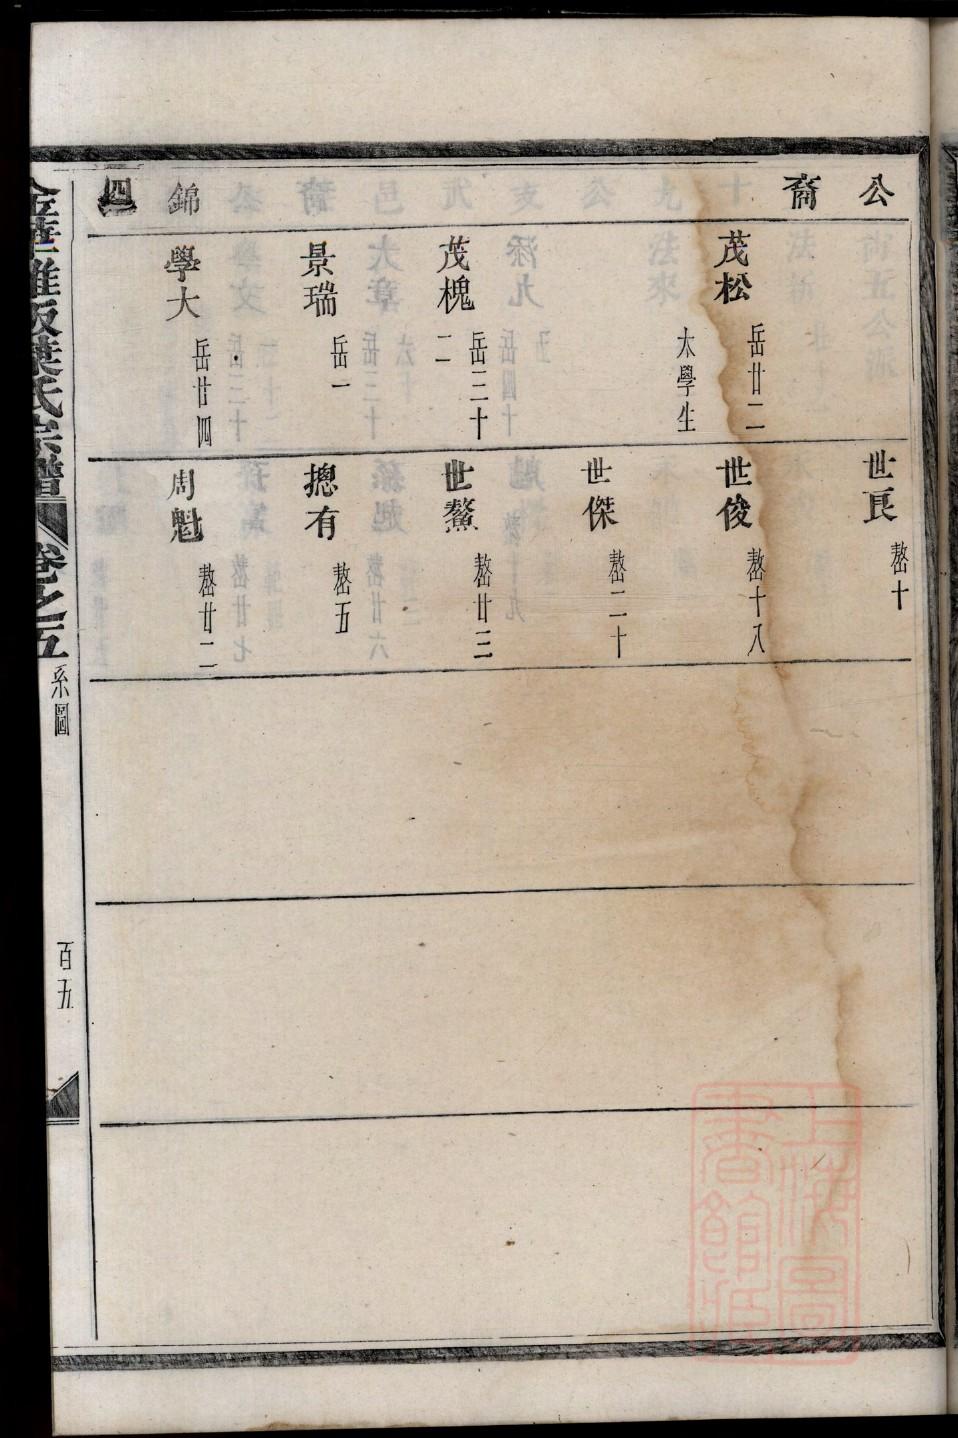 公
裔
錦
四
茂松
岳廿二
太學生
茂槐
岳三十
二
景瑞
岳一
學大
岳廿四
世良
嶅十
世俊
嶅十八
世傑
嶅二十
世鰲
嶅廿三
摠有
嶅五
周魁
嶅廿二
葉氏宗譜
卷之五
系圖
百五
上海圖
書館藏